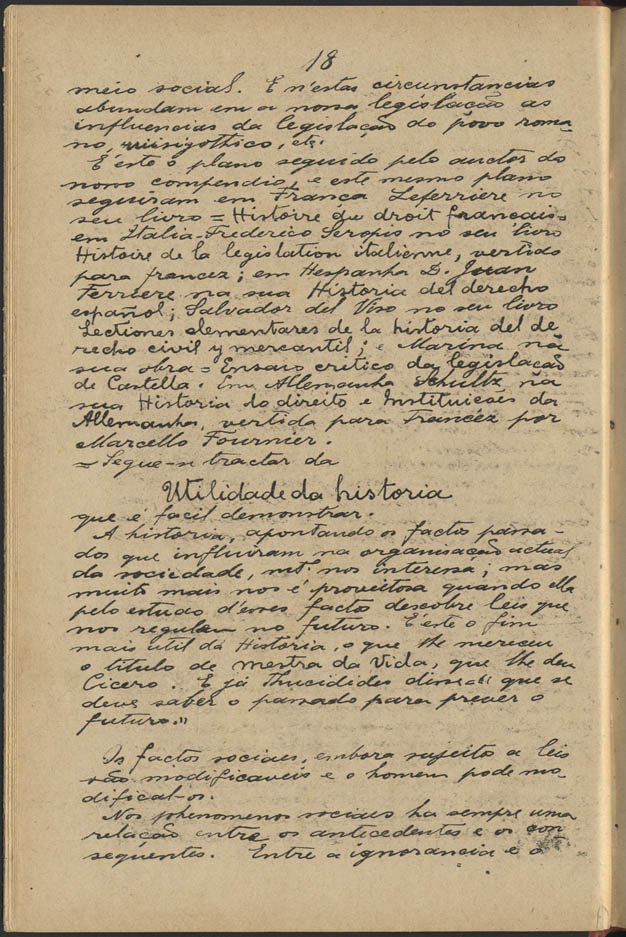 18
meio social. E n'estas circunstancias
abundam em a nossa legislação as
influencias da legislação do povo roma-
no, wisigothico, etc.
É este o plano seguido pelo auctor do
novo compendio, e este mesmo plano
seguiram em França Leferriere no
seu livro = Histoire du droit français =
em Italia - Frederico Seropis no seu livro
Histoire de la legislation italiènne, vertido
para francez; em Hespanha D. Juan
Ferriere na sua Historia del derecho
español; Salvador del Viso no seu livro
Lectiones elementares de la historia del de
recho civil y mercantil; e Marina na
sua obra = Ensaio critico da legislação
de Castella. Em Allemanha Schultz na
sua Historia do direito e Instituicoes da
Allemanha, vertida para Francez por
Marcello Fournier.
= Segue-se tractar da
Utilidade da historia
que é facil demonstrar.
A historia, apontando os factos passa-
dos que influiram na organisação actual
da sociedade, mto. nos interessa; mas
muito mais nos é proveitosa quando ella
pelo estudo d'esses factos descobre leis que
nos regulam no futuro. É este o fim
mais util da Historia, o que lhe mereceu
o titulo de mestra da Vida, que lhe deu
Cicero. E já Thucidides disse "que se
deve saber o passado para prever o
futuro."
Os factos sociaes, embora sujeitos a leis
são modificaveis e o homem pode mo-
difical-os.
Nos phenomenos sociaes ha sempre uma
relação entre os antecedentes e os con
sequentes. Entre a ignorancia e o